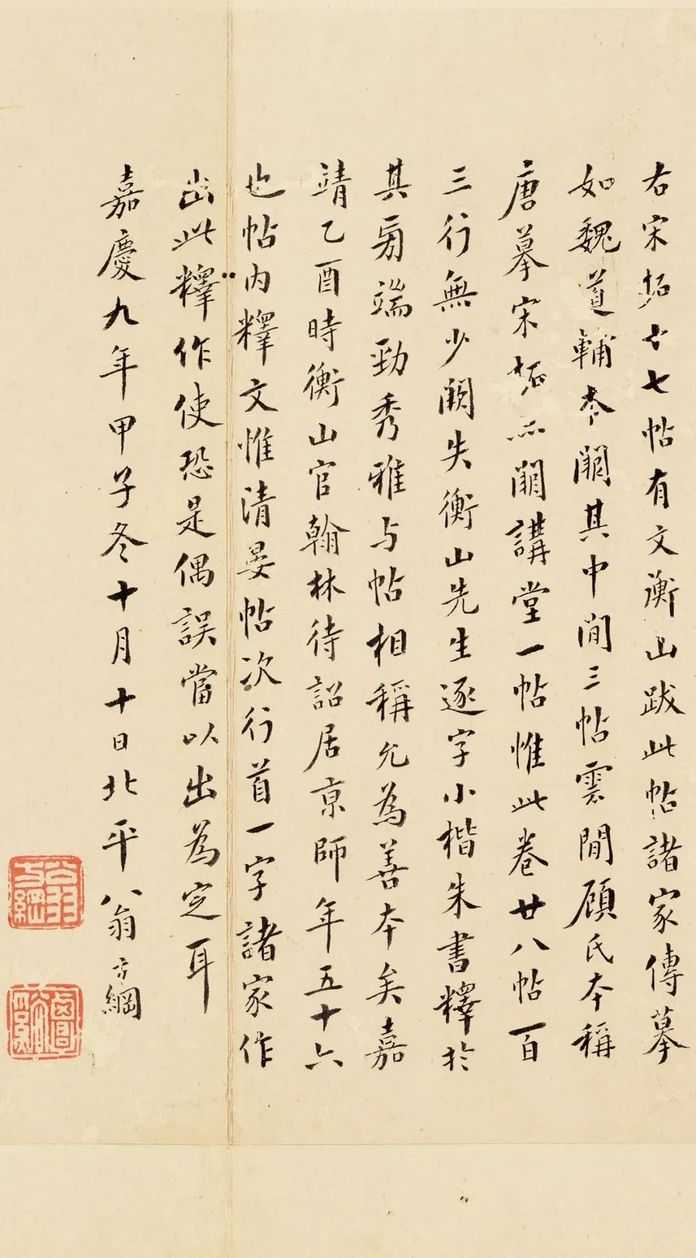 右宋拓十七帖有文衡山跋此帖諸家傳摹
如魏道輔本闕其中間三帖雲間顧氏本稱
唐摹宋拓亦闕講堂一帖惟此卷廿八帖一百
三行無少闕失衡山先生逐字小楷朱書釋於
其旁端勁秀雅与帖相稱允為善本矣嘉
靖乙酉時衡山官翰林待詔居京師年五十六
也帖內釋文惟清晏帖次行首一字諸家作
出此釋作使恐是偶誤當以出為定耳
嘉慶九年甲子冬十月十日北平翁方綱
翁方綱